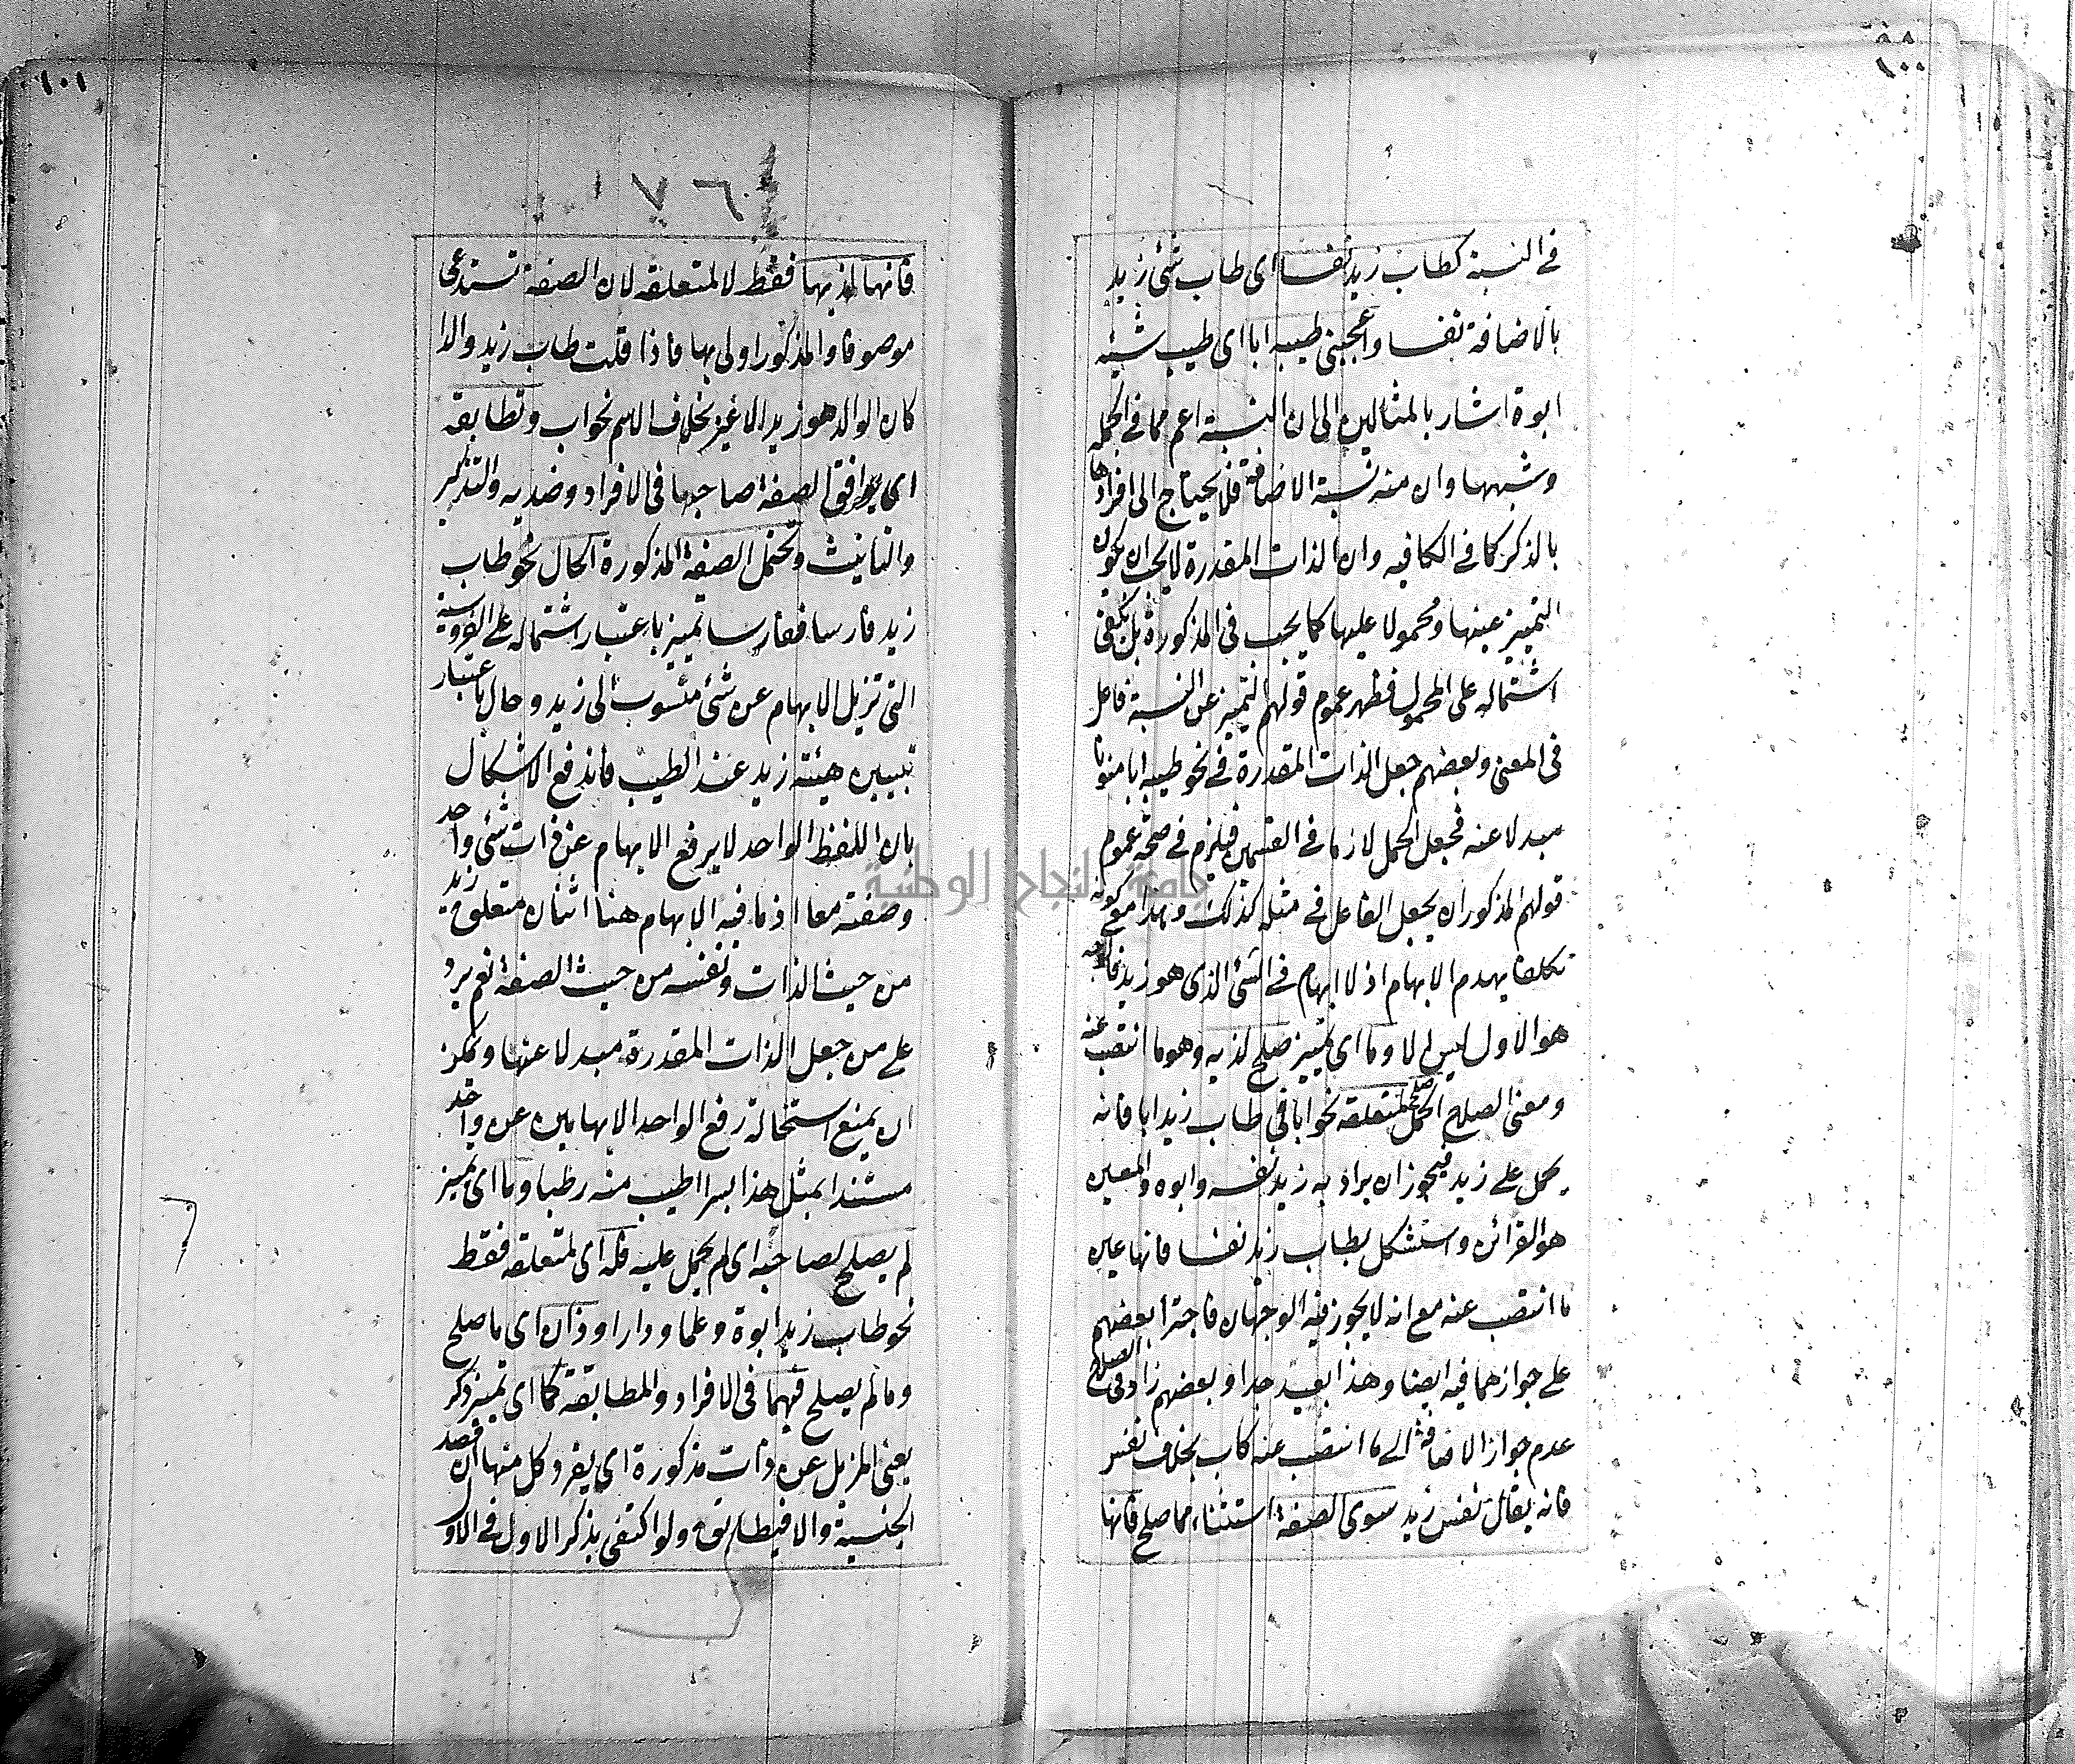 ١٠٠
فى النسبة كطاب زيد نفسا اى طاب شئ زيد
بالاضافة نفسا واعجبنى طيبه ابا اى طيب شيئه
ابوة اشار بالمثالين الى ان النسبة اعم مما فى الجملة
وشبهها وان منه نسبة الاضافة فلا يحتاج الى افرادها
بالذكر كما فى الكافيه وان الذات المقدرة لا يجب ان يكون
التمييز عينها ومحمولا عليها كما يجب فى المذكورة بل يكفى
اشتماله على المحمول فظهر عموم قولهم التمييز عن النسبة فاعل
فى المعنى وبعضهم جعل الذات المقدرة فى نحو طيبه ابا منونا
مبدلا عنه فجعل الحمل لازما فى القسمين فيلزم فى صحة عموم
قولهم المذكور ان يجعل الفاعل فى مثله كذلك وهذا مع كونه
تكلفا يهدم الابهام اذ لا ابهام فى الشئ الذى هو زيد
هو الاول ليس الا وما اى تمييز صلح لذيه وهو ما انتصب عنه
ومعنى الصلاح الحمل صلح لمتعلقه نحو ابا فى طاب زيد ابا فانه
يحمل على زيد فيجوز ان يراد به زيد نفسه وابوه والمعين
هو القرائن واستشكل بطاب زيد نفسا فانها عين
ما انتصب عنه مع انه لا يجوز فيه الوجهان فاجترأ بعضهم
على جوازهما فيه ايضا وهذا بعيد جدا وبعضهم زاد فى الصلاح
عدم جواز الاضافة الى ما انتصب عنه كاب بخلاف نفس
فانه يقال نفس زيد سوى الصفة استثناء مما صلح فانها
١٠١
١٧٦
فانها لذيها فقط لا لمتعلقه لان الصفة تستدعى
موصوفا والمذكور اولى بها فاذا قلت طاب زيد والدا
كان الوالد هو زيدا لا غيره بخلاف الاسم نحو اب وتطابقه
اى يوافق الصفة صاحبها فى الافراد وضديه والتذكير
والتانيث وتحتمل الصفة المذكورة الحال نحو طاب
زيد فارسا ففارسا تمييز باعتبار اشتماله على الفروسية
التى تزيل الابهام عن شئ منسوب الى زيد وحال باعتبار
تبيين هيئة زيد عند الطيب فاندفع الاشكال
بان اللفظ الواحد لا يرفع الابهام عن ذات شئ واحد
وصفته معا اذ ما فيه الابهام هنا اثنان متعلق زيد
من حيث الذات ونفسه من حيث الصفة نعم يرد
على من جعل الذات المقدرة مبدلا عنها ويمكن
ان يمنع استحالة رفع الواحد الابهامين عن واحد
مستندا بمثل هذا بسرا اطيب منه رطبا وما اى تمييز
لم يصلح لصاحبه اى لم يحمل عليه فله اى لمتعلقه فقط
نحو طاب زيد ابوة وعلما ودارا وذان اى ما صلح
وما لم يصلح فيهما فى الافراد والمطابقة كما اى تمييز ذكر
يعنى المزيل عن ذات مذكورة اى يفرد كل منها ان قصد
الجنسية والا فيطابق ولو اكتفى بذكر الاول فى الاول
جامعة النجاح الوطنية